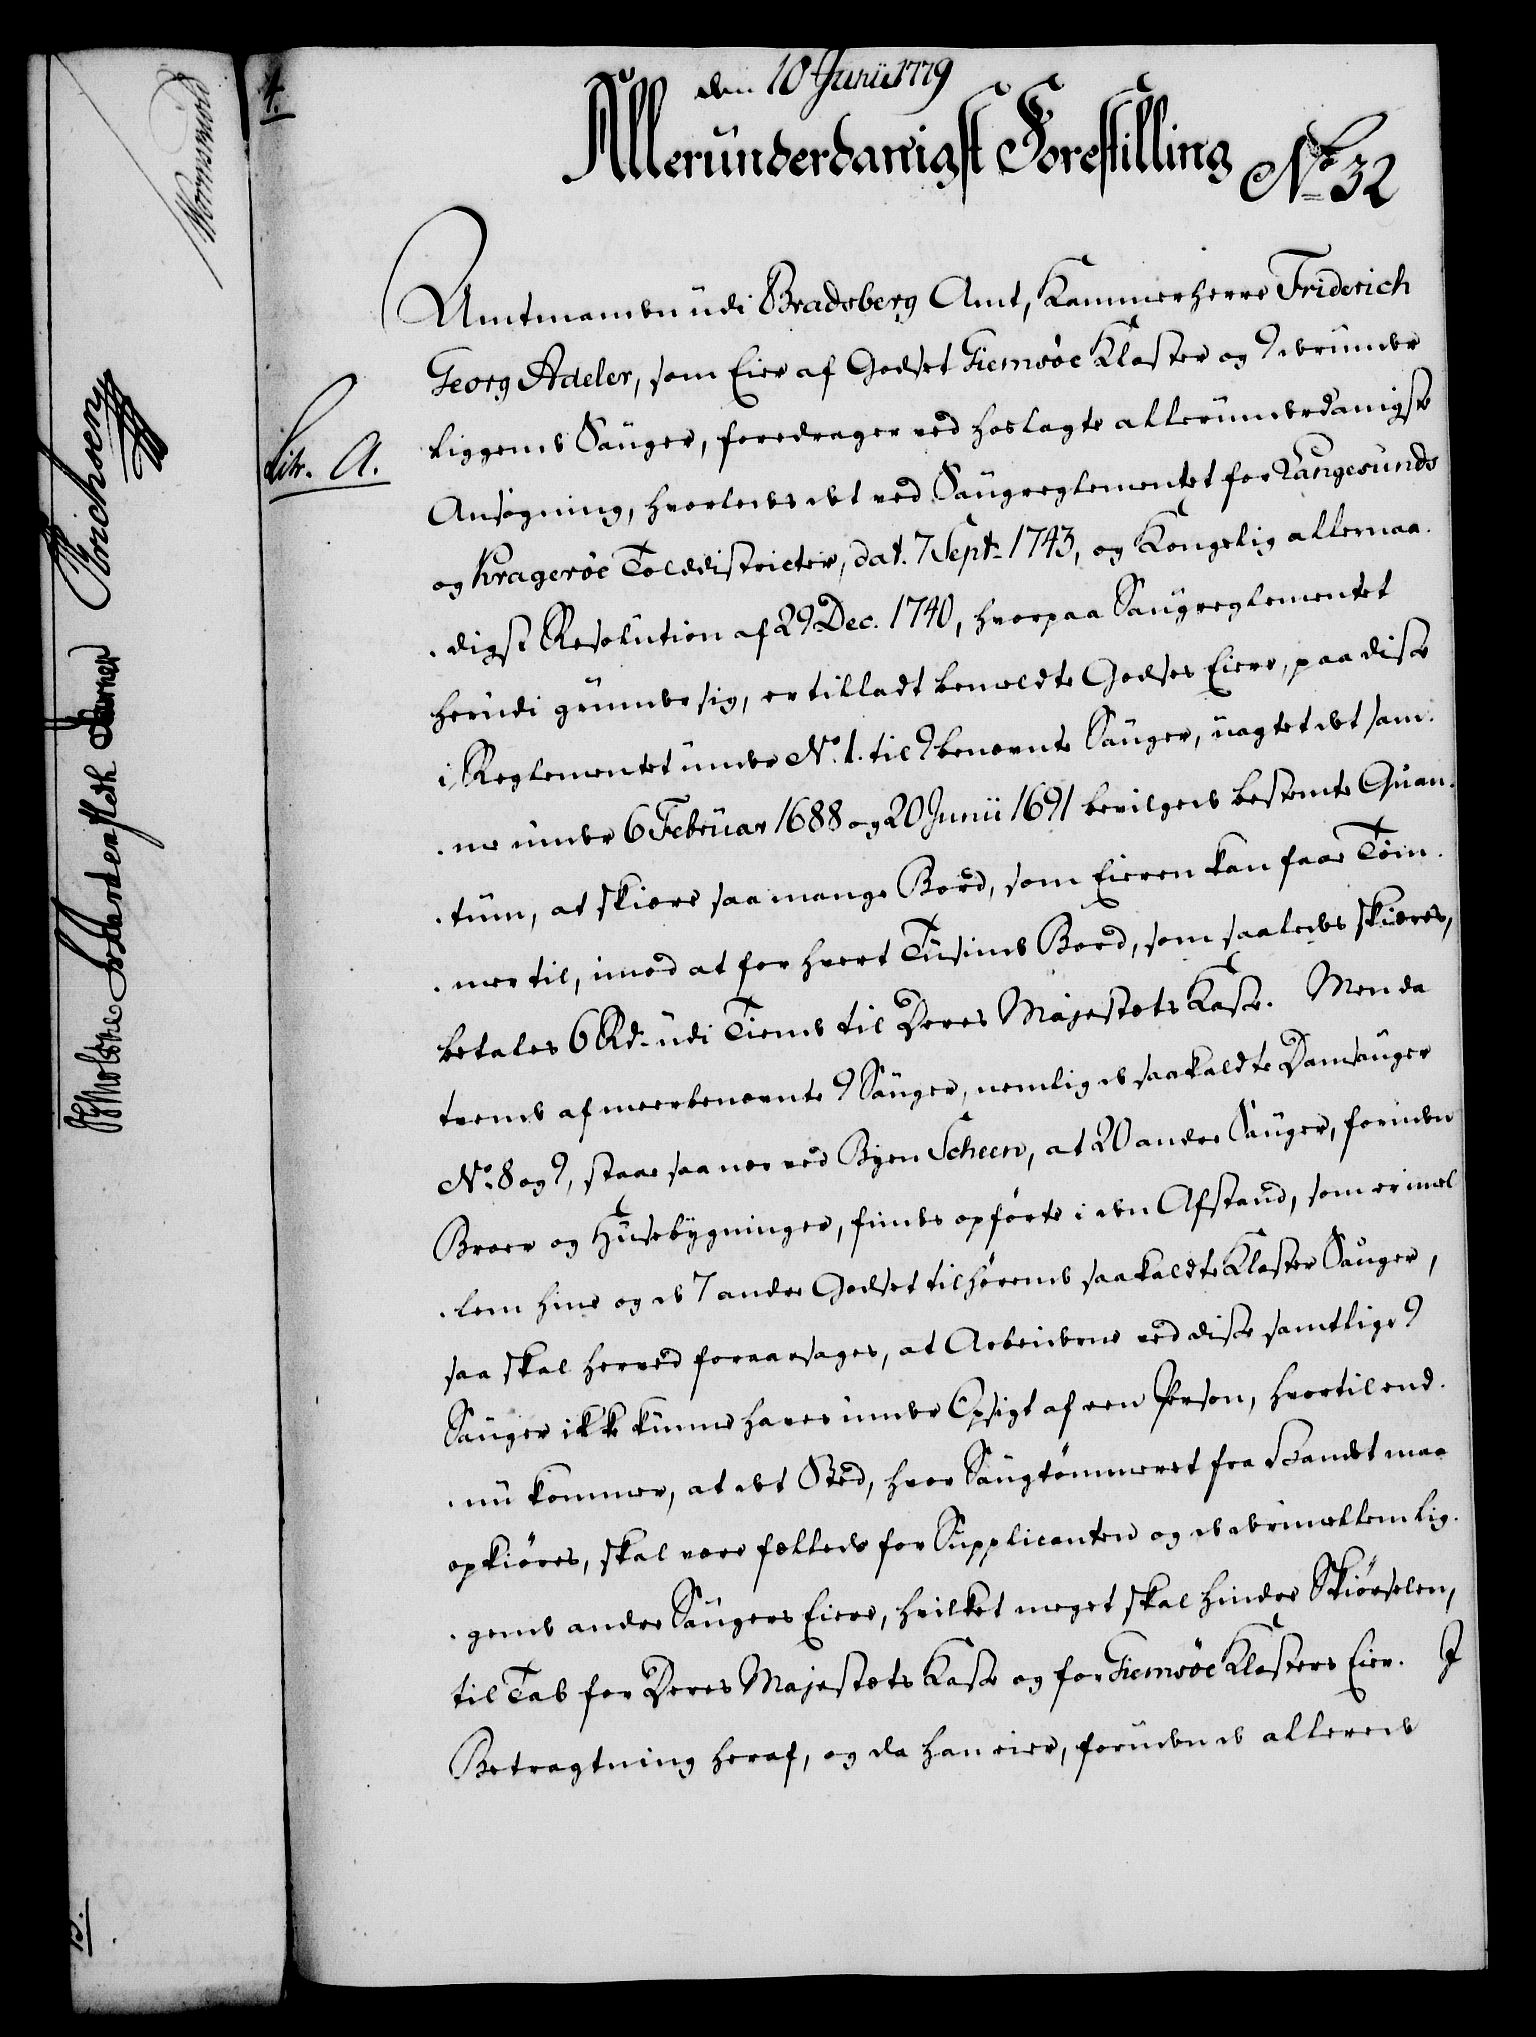 den 10 Junii 1779
Allerunderdanigst Forestilling
No. 32
4.
Amtmanden udi Bradsberg Amt, Kammerherre Friderich
Georg Adeler, som Eier af Godset Giemsöe Kloster og 9 derunder
Litr. A.
liggende Sauger, foredrager ved hoslagte allerunderdanigste
Ansøgning, hvorledes det ved Saugreglementet for Langesunds
og Kragerøe Tolddistricter, dat. 7 Sept. 1743, og Kongelig allernaa-
-digst Resolution af 29 Dec. 1740, hvorpaa Saugreglementet
herudi grunder sig, er tilladt bemeldte Godses Eiere, paa disse
i Reglementet under No. 1. til 9 benevnte Sauger, uagtet det sam-
-me under 6 Februar 1688 og 20 Junii 1691 bevilgede bestemte Quan-
-tum, at skiære saa mange Bord, som Eieren kan faae Töm-
-mer til, imod at for hvert Tusinde Bord, som saaledes skiæres,
betales 6 Rd. udi Tiende til Deres Majestets Kasse. Men da
tvende af meerbenevnte 9 Sauger, nemlig de saakaldte Damsauger
No. 8 og 9, staae saa nær ved Byen Scheen, at 20 andre Sauger, foruden
Broer og Husebygninger, findes opførte i den Afstand, som er imel-
-lem hine og de 7 andre Godset tilhørende saakaldte Kloster Sauger,
saa skal herved foraarsages, at Arbeiderne ved disse samtlige 9
Sauger ikke kunne haves under Opsigt af een Person, hvortil end-
-nu kommer, at det Sted, hvor Saugtömmeret fra Vandet maa
opkiøres, skal være fælleds for Supplicanten og de derimellem lig-
-gende andre Saugers Eiere, hvilket meget skal hindre Skiørselen,
til Tab for Deres Majestets Kasse og for Giemsöe Klosters Eier. I
Betragtning heraf, og da han eier, foruden de allerede
Wormskiold
Erichsen